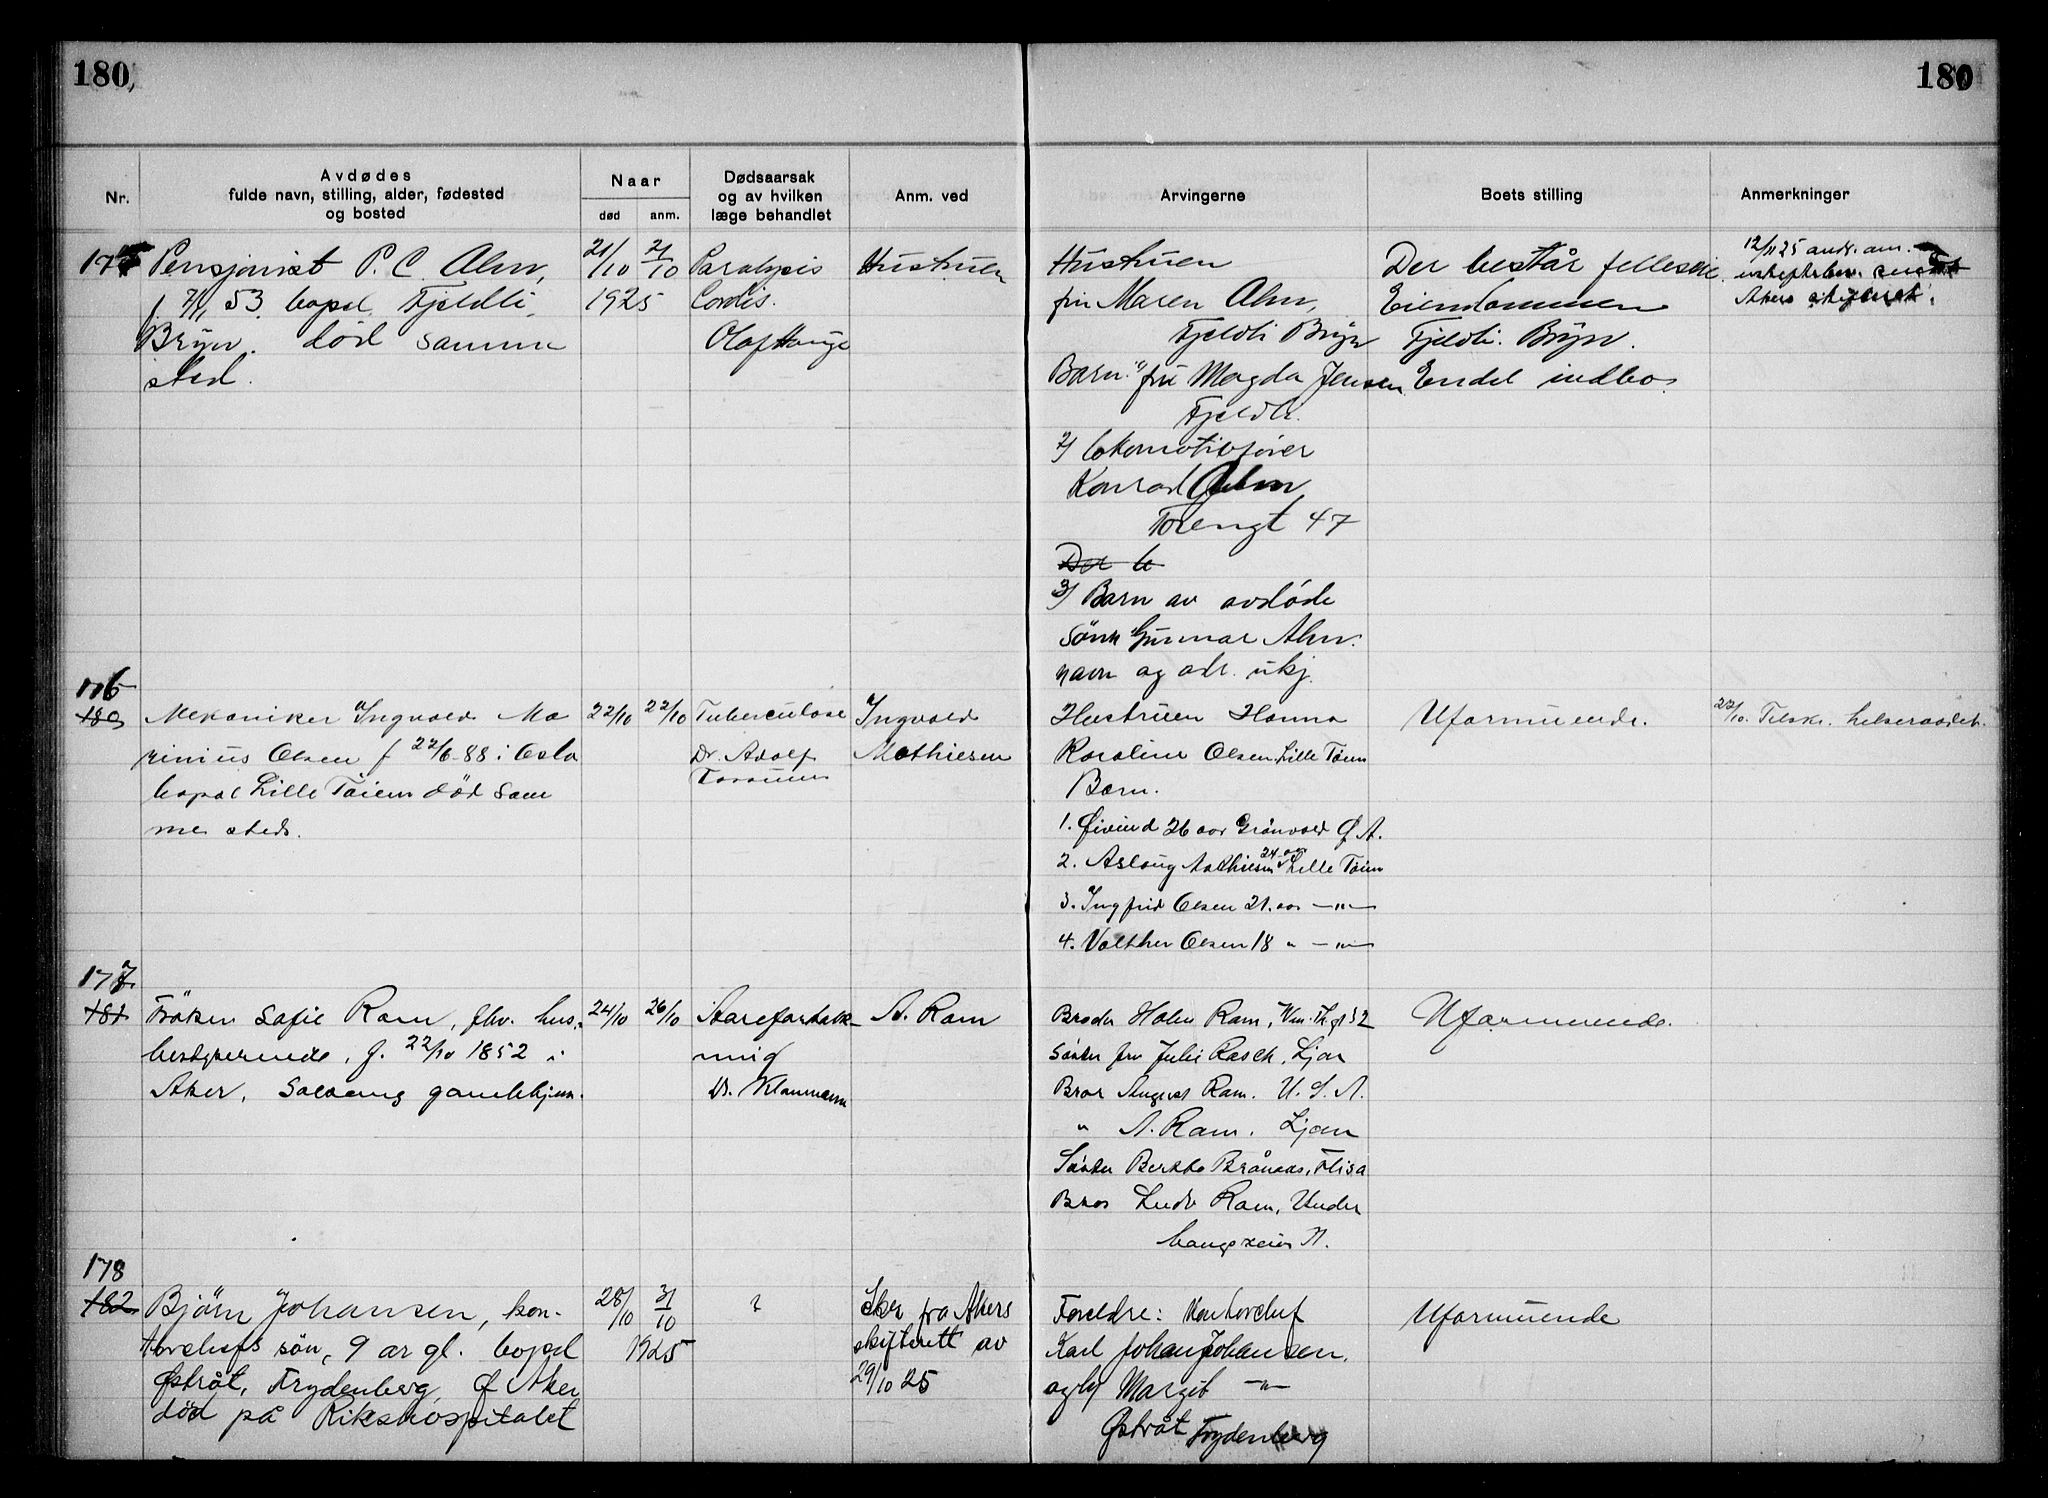 180
180
Nr.
Avdødes
fulde navn, stilling, alder, fødested
og bosted
Naar
død
anm.
Dødsaarsak
og av hvilken
læge behandlet
Anm. ved
Arvingerne
Boets stilling
Anmerkninger
175
Pensjonist P. C. Alm,
f. 7/1, 53. bopel Fjeldli,
Bryn. død samme
sted.
21/10
1925
21/10
Paralysis
Cordis.
Olaf Hauge
Hustruen
Hustruen
fru Maren Alm,
Fjeldli Bryn
Barn: 1) fru Magda Jensen
Fjeldli.
2) lokomotivfører
Konrad Alm
Torengt 47
Der b
3) Barn av avdøde
sönn Gunnar Alm.
navn og adr. ukj.
Der består felleseie.
Eiendommen
Fjeldli. Bryn.
Endel indbo.
12/11 25 andr. am.
uskifteber. sendt
Akers skifterett.
176
180
Mekaniker Ingvald Ma
rinius Olsen f 22/6-88 i Oslo
bopel Lille Töien död sam
me steds.
22/10
22/10
Tuberculose
Dr. Adolf
Ingvald
Mathiesen
Hustruen Hanna
Karoline Olsen, Lille Töien
Barn.
1. Øivind 26 aar Grönvold Ø. A.
2. Aslaug Mathiesen 24 aar Lille Töien
3. Ingfrid Olsen 21. aar —"—
4. Valther Olsen 18 " —"—
Uformuende.
22/10. Tilskr. helseraadet.
177.
181
Fröken Sofie Ram, fhv. hus-
bestyrerinde, f. 22/10 1852 i
Aker, Solvang gamlehjem.
24/10
26/10
Aareforkalk-
ning
Dr. Klaumann
A. Ram
Broder Holm Ram, Wm. Th. gt 52
Söster fru Julie Rasch, Ljan
Bror August Ram. U. S. A.
" A. Ram. Ljan
Söster Berthe Brånaas, Flisa
Bror Ludv Ram, Under
haugsveien 11.
Uformuende.
178
182
Bjørn Johansen, kon-
torchefs søn, 9 ar gl. bopel
Østråt, Frydenberg Ø Aker
död på Rikshospitalet
28/10
31/10
1925
?
Skr. fra Akers
skifterett av
29/10 25
Foreldre: Kontorchef
Karl Johan Johansen.
og Margit —"—
Østråt Frydenberg
Uformuende